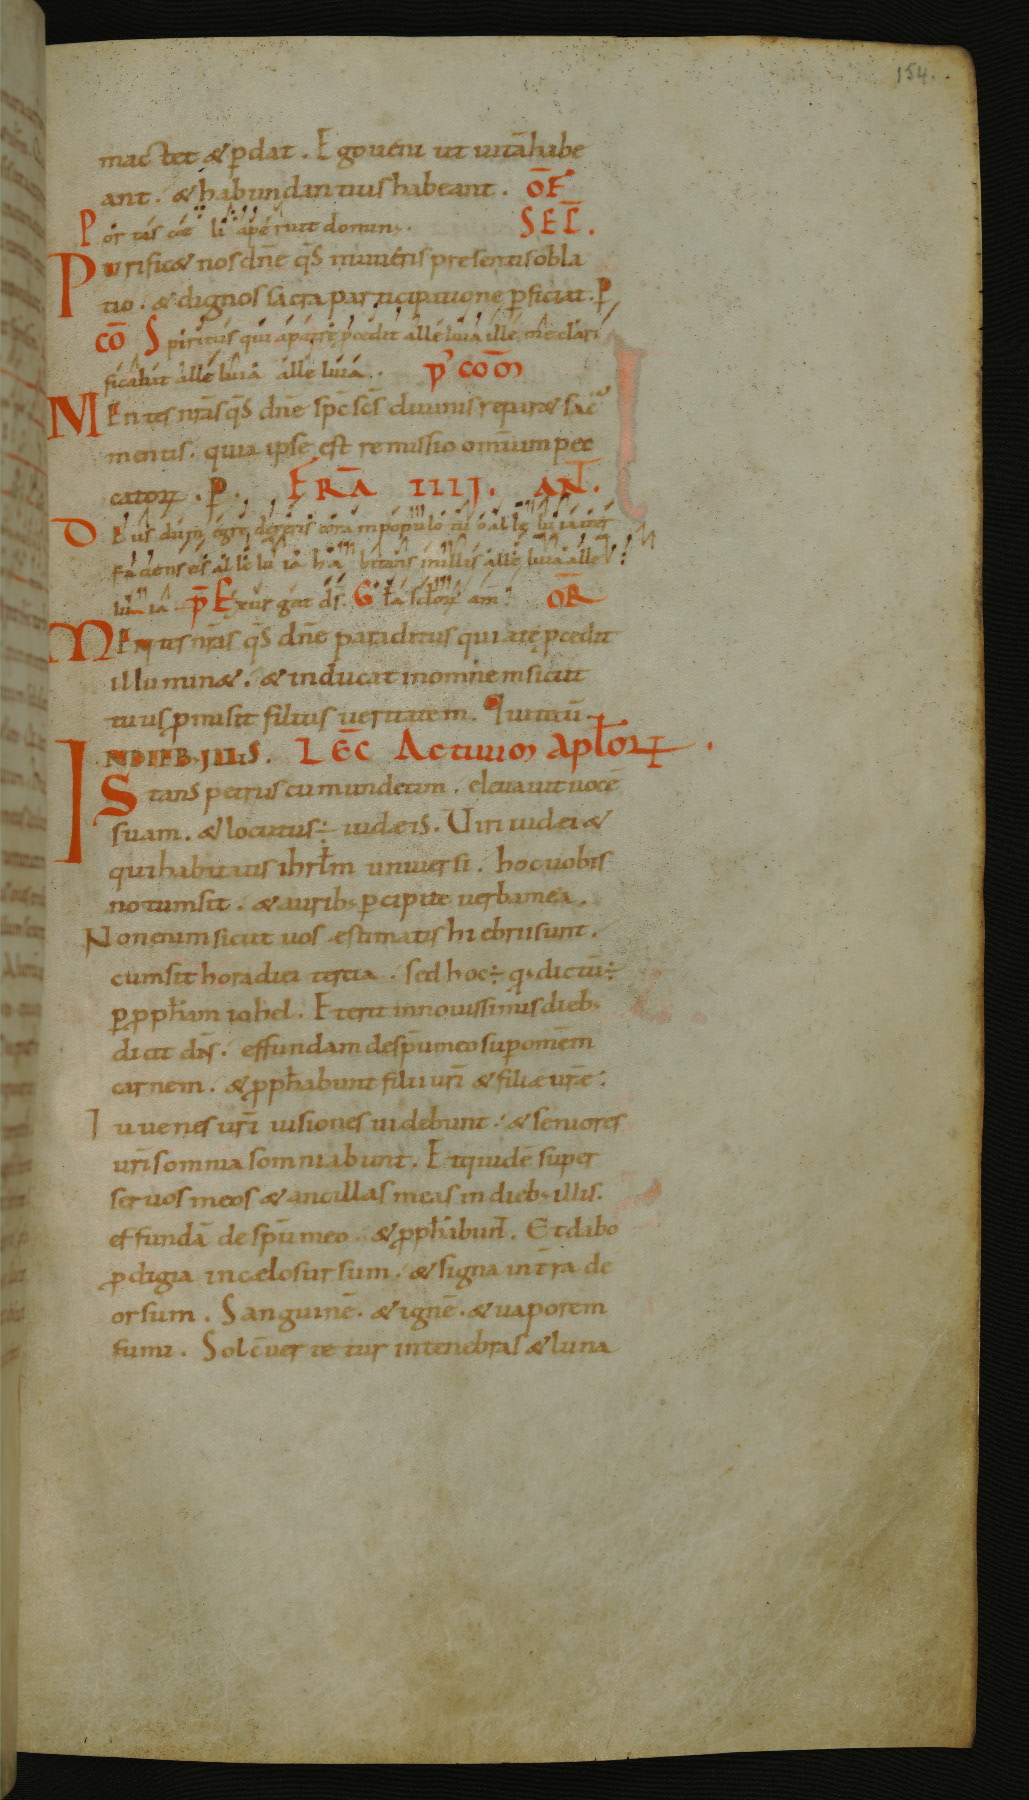 154.
mactet & p̄dat. Ego ueni ut uitā habe
ant. & habundantius habeant. OF̄
Portas cae li aperuit dominus. SECR̄.
Purific& nos dn̄e qs̄ muneris presentis obla
tio. & dignos sacra participatione p̄ficiat. P̄
CŌ Spiritus qui a patre p̄cedit alleluia ille me clari
ficabit alle luia alle luia. P' COM̄
Mentes nr̄as qs̄ dn̄e sp̄c sc̄s diuinis repar& sac̄
mentis. quia ipse est remissio omnium pec
catorꝝ. P̄. FR̄A IIII. AÑ.
Deus dum egredereris coram populo tuo alleluia iter
faciens eis alleluia habitans in illis alle luia alle
luia. P̄ Exurgat ds̄. Gl̄a sc̄lorꝝ am̄. OR̄
Mentes nr̄as qs̄ dn̄e paraclitus qui a te p̄cedit
illumin&. & inducat in omnem sicut
tuus p̄misit filius ueritatem. Qui tecū
IN DIEB; ILLIS. LEC̄ Actuum apl̄orꝝ.
Stans petrus cum undecim. eleuauit uocē
suam. & locutus ÷ iudeis. Uiri iudei &
qui habitatis ihrl̄m uniuersi. hoc uobis
notum sit. & aurib; p̄cipite uerba mea.
Non enim sicut uos estimatis hi ebrii sunt.
cum sit hora diei tertia. sed hoc ÷ qd̄ dictū ÷
p̄ p̄ph̄am iohel. Et erit in nouissimis dieb;
dicit dn̄s. effundam de sp̄u meo sup̄ omēm
carnem. & p̄ph̄abunt filii ur̄i & filiae ur̄e.
Iuuenes ur̄i uisiones uidebunt. & seniores
ur̄i somnia somniabunt. Et quidē super
seruos meos & ancillas meas in dieb; illis.
effundā de sp̄u meo. & p̄ph̄abunt̄. Et dabo
p̄digia in caelo sursum. & signa in t̄ra de
orsum. Sanguinē. & ignē. & uaporem
fumi. Sol c̄uertetur in tenebras & luna